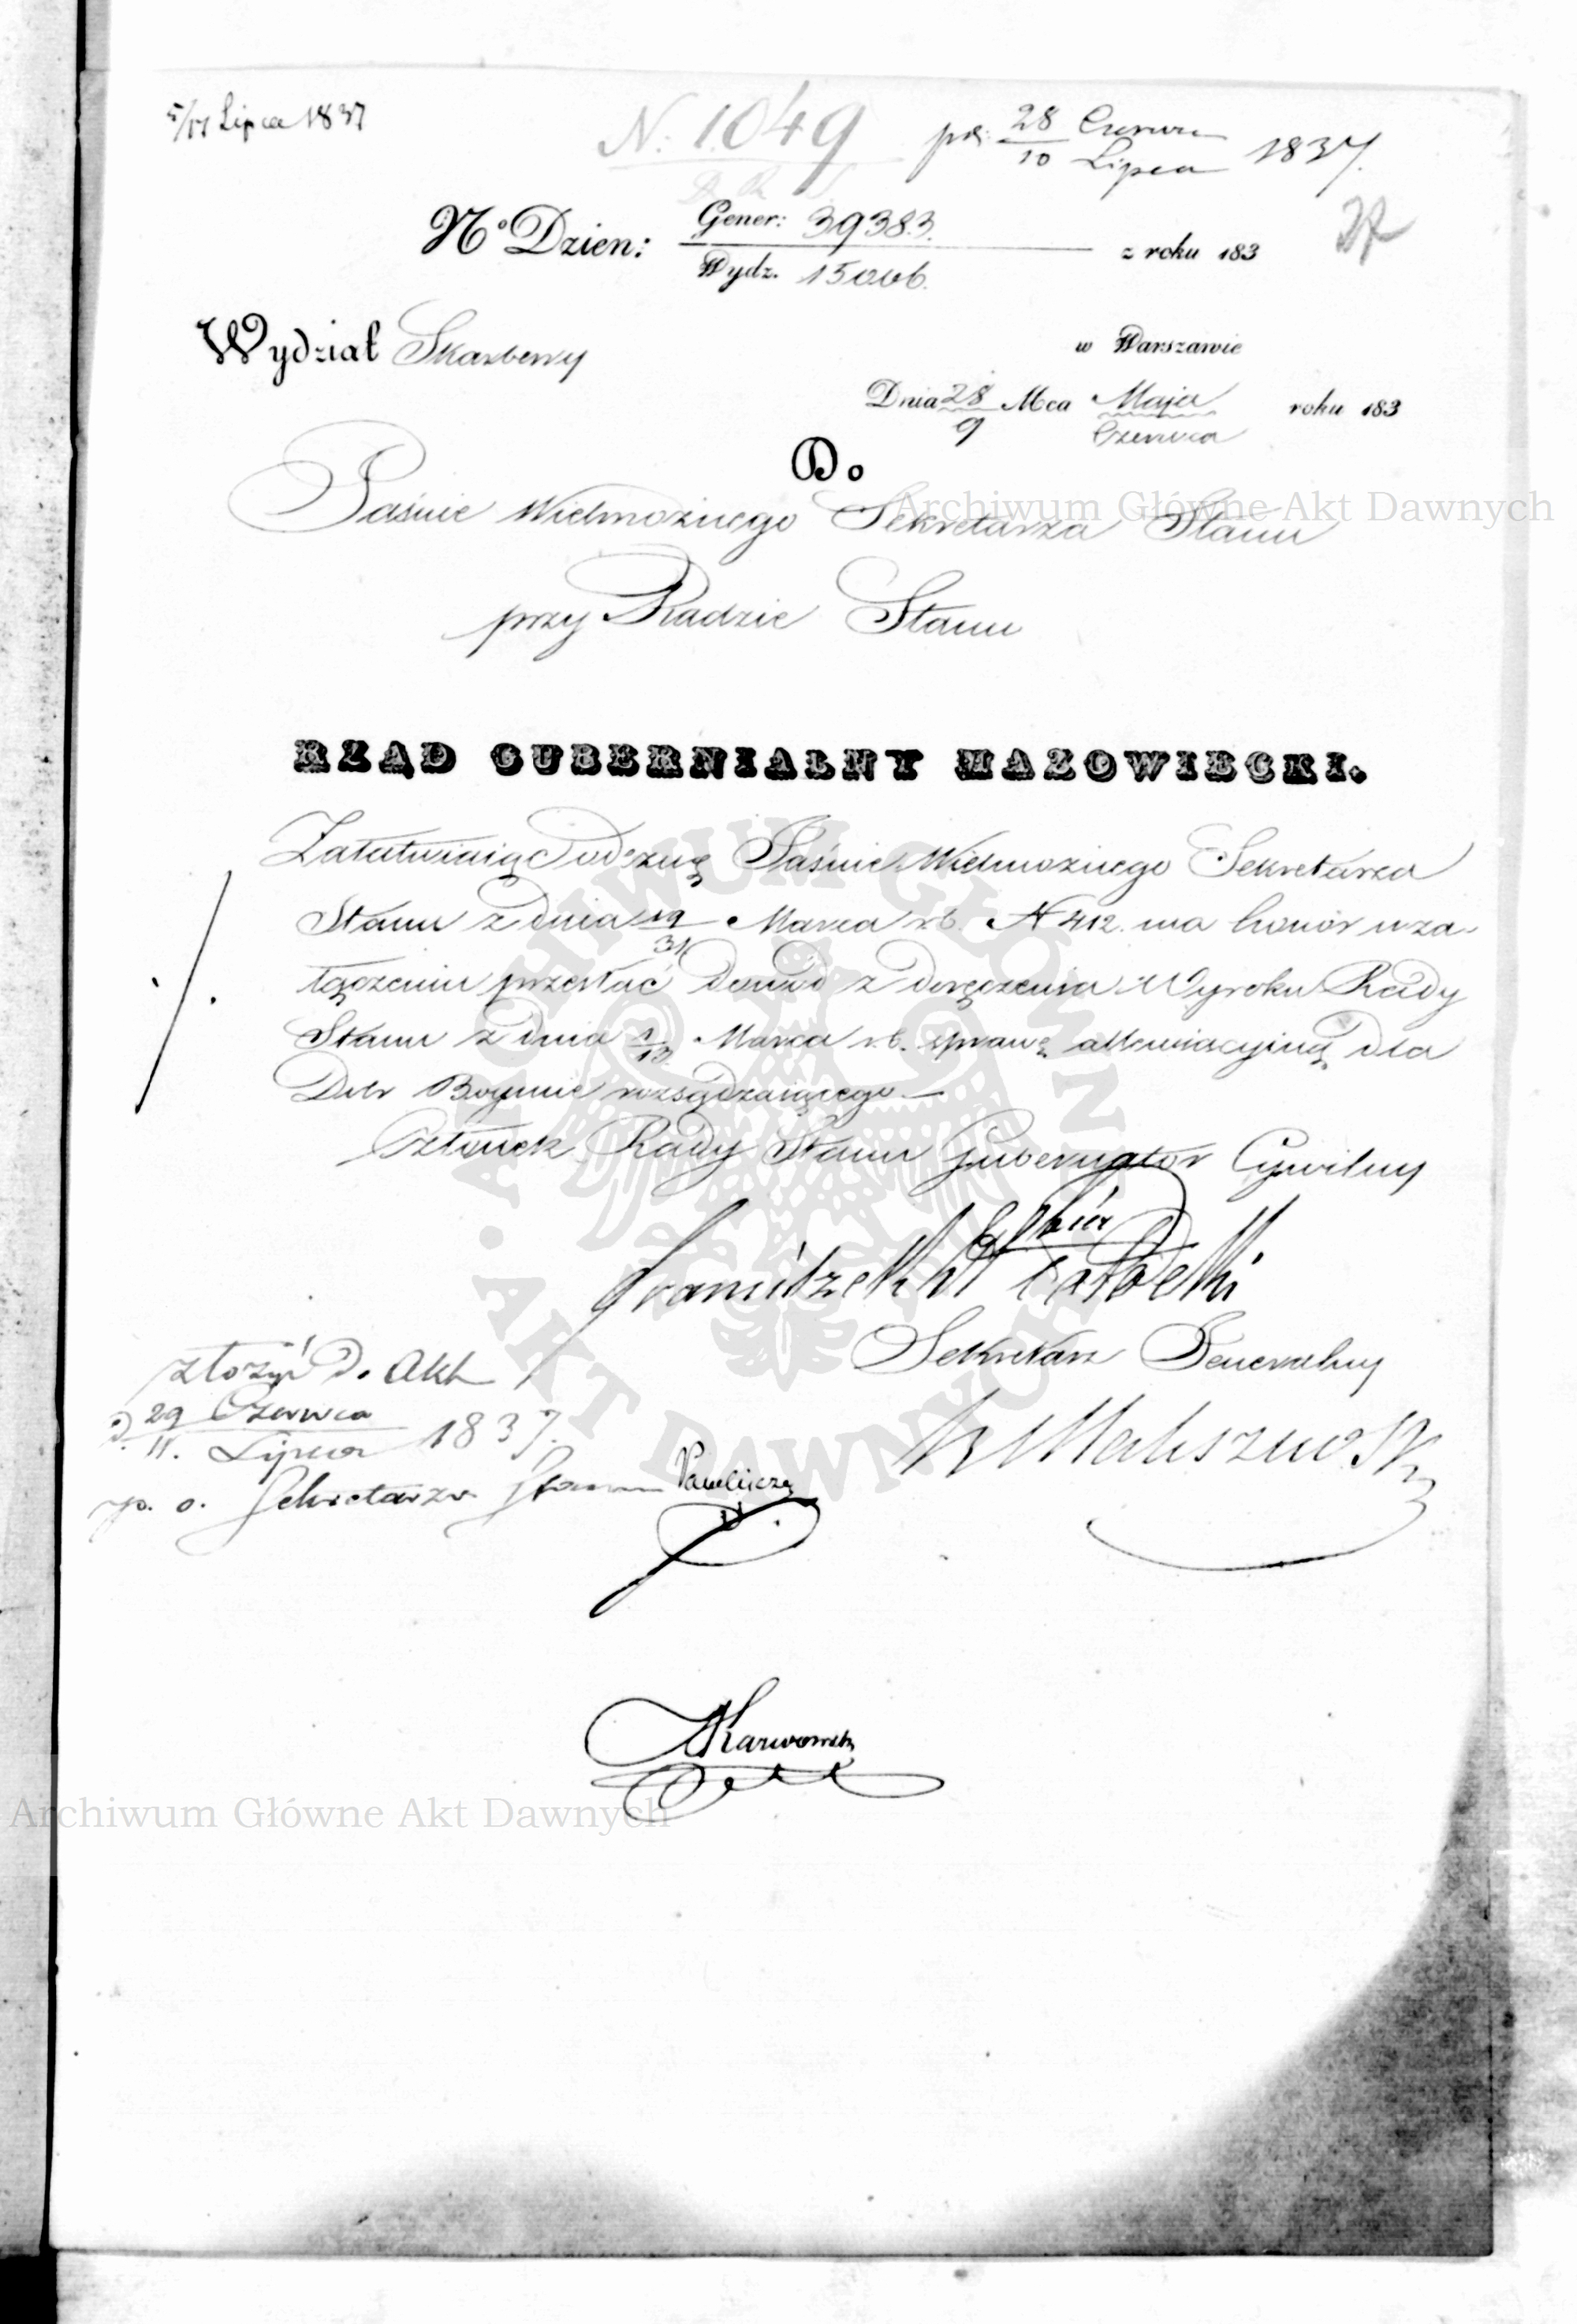 5/17 Lipca 1837
N. 1049
pr: 28 Czerwca / 10 Lipca 1837.
No Dzien: Gener: 39383. / Wydz. 15006. z roku 183
Wydział Skarbowy
w Warszawie
Dnia 28/9 Mca Maja/Czerwca roku 183
Do
Jaśnie Wielmożnego Sekretarza Stanu
przy Radzie Stanu
RZĄD GUBERNIALNY MAZOWIECKI.
Załatwiaiąc odezwę Jaśnie Wielmożnego Sekretarza
Stanu z dnia 19/31 Marca r.b. N 412. ma honor w za-
łączeniu przesłać dowód z doręczenia Wyroku Rady
Stanu z dnia 1/13 Marca r.b. sprawę allewiacyiną dla
Dóbr rozsądzaiącego.—
Członek Rady Stanu Gubernator Cywilny
Sekretarz Generalny
złożyć do Akt
d. 29 Czerwca / 11. Lipca 1837.
p. o. Sekretarza Stanu
Karwowski
Archiwum Główne Akt Dawnych
Archiwum Główne Akt Dawnych
ARCHIWUM GŁÓWNE • AKT DAWNYCH •